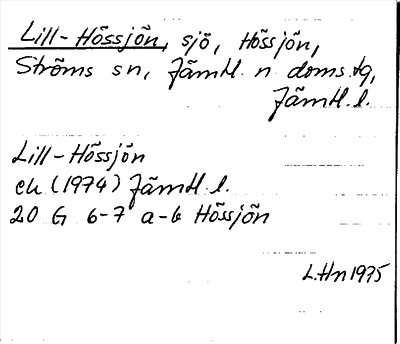 Lill-Hössjön, sjö, Hössjön,
Ströms sn, Jämtl. n. doms.tg,
Jämtl. l.
Lill-Hössjön
ek (1974) Jämtl. l.
20 G 6-7 a-b Hössjön
L.Hn 1975